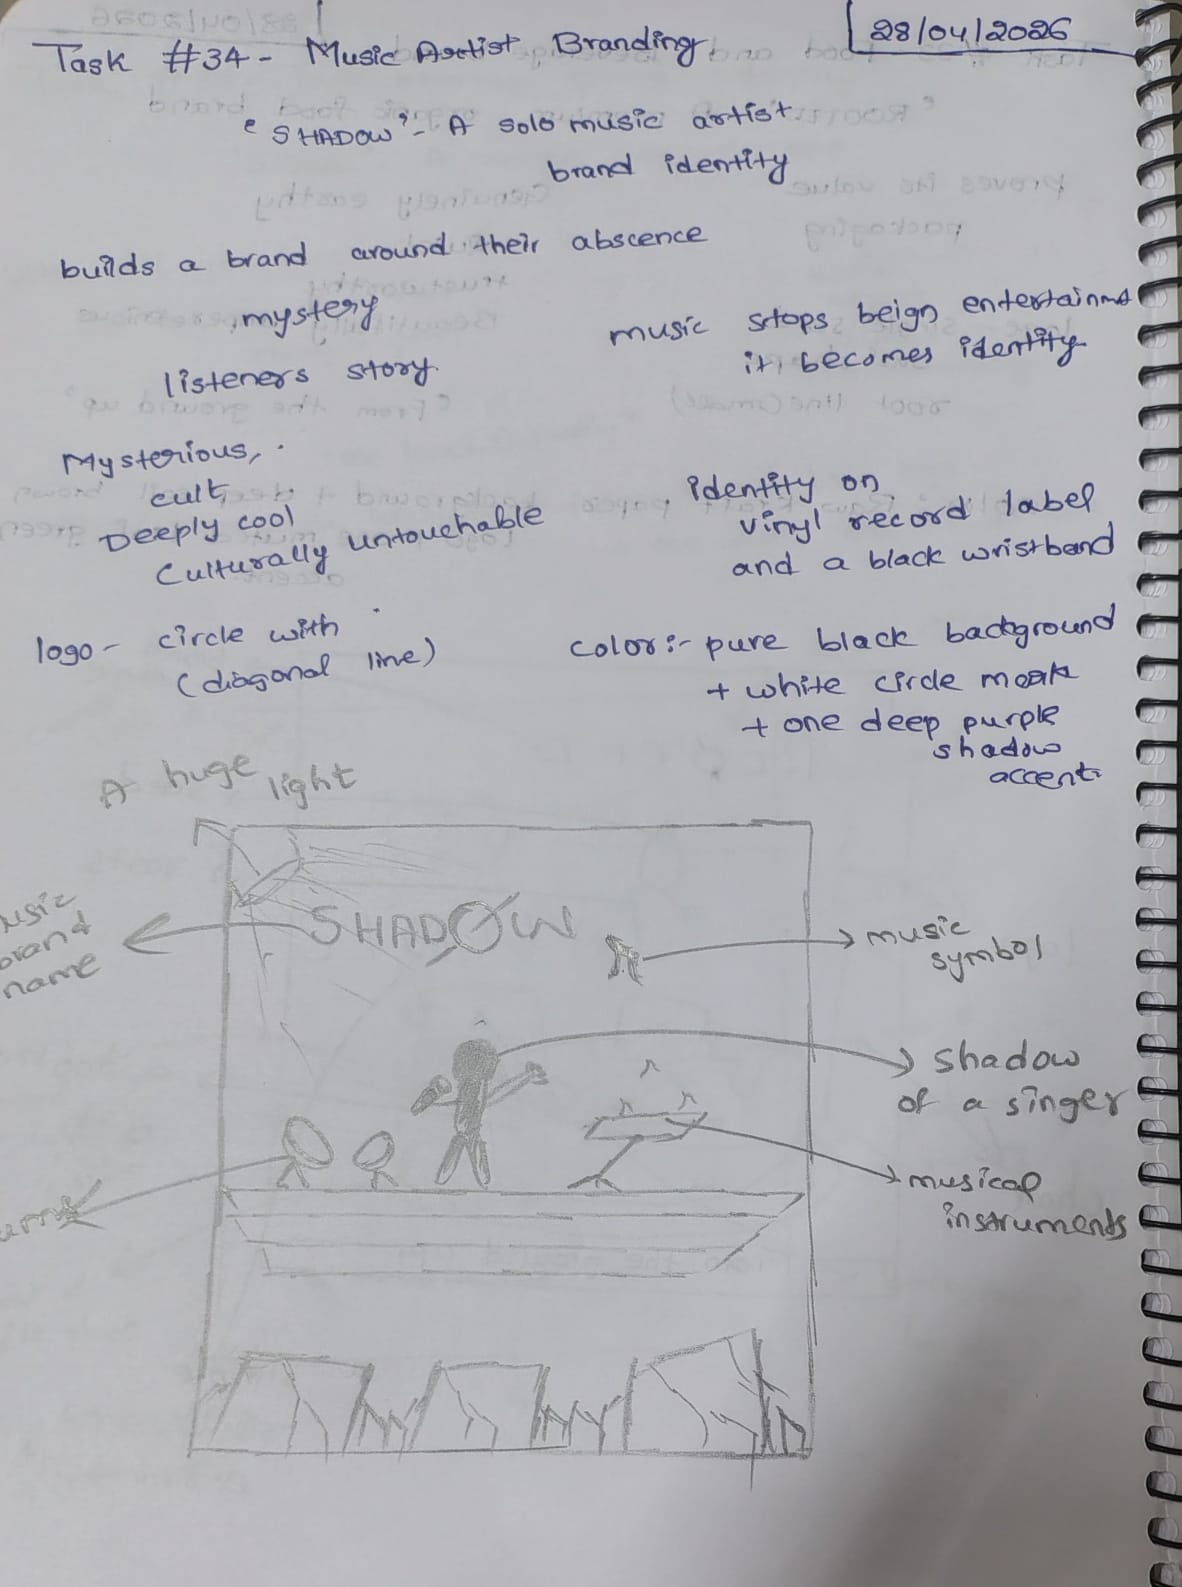 28/04/2026
Task #34 - Music Artist Branding
'SHADOW' - A solo music artist
brand identity
builds a brand around their abscence
mystery
listeners story
music stops beign entertainm
it becomes identity
Mysterious,
cult
Deeply cool
Culturally untouchable
identity on
vinyl record label
and a black wristband
logo - circle with
(diagonal line)
color:- pure black background
+ white circle mark
+ one deep purple
shadow
accent
A huge
light
SHADOW
brand
name
music
symbol
shadow
of a singer
musical
instruments